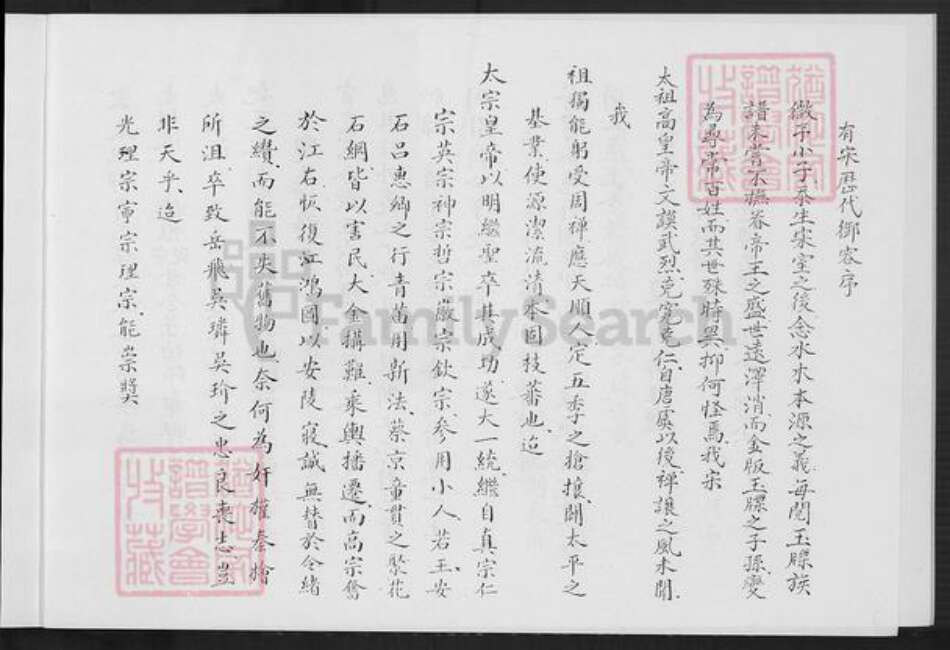 有宋歷代御容序
微予小子忝生宋室之後念水木本源之義每閱玉牒族
譜未嘗不撫卷帝王之盛世遠澤消而金版玉牒之子孫變
為尋常百姓而其世殊時異抑何怪焉我宋
太祖高皇帝文謨武烈克寬克仁自唐虞以後禪讓之風未聞
我
祖獨能躬受周禪應天順人定五季之搶攘開太平之
基業使源潔流清本固枝蕃也迨
太宗皇帝以明繼聖卒其成功遂大一統繼自真宗仁
宗英宗神宗哲宗徽宗欽宗參用小人若王安
石呂惠卿之行青苗用新法蔡京童貫之聚花
石綱皆以害民大金搆難乘輿播遷而高宗奮
於江右恢復江鴻圖以安陵寢誠無替於令緒
之纘而能不失舊物也奈何為奸權秦檜
所沮卒致岳飛吳璘吳玠之忠良喪志豈
非天乎迨
光理宗寧宗理宗能崇獎
FamilySearch
譜學會
收藏
譜學會
收藏